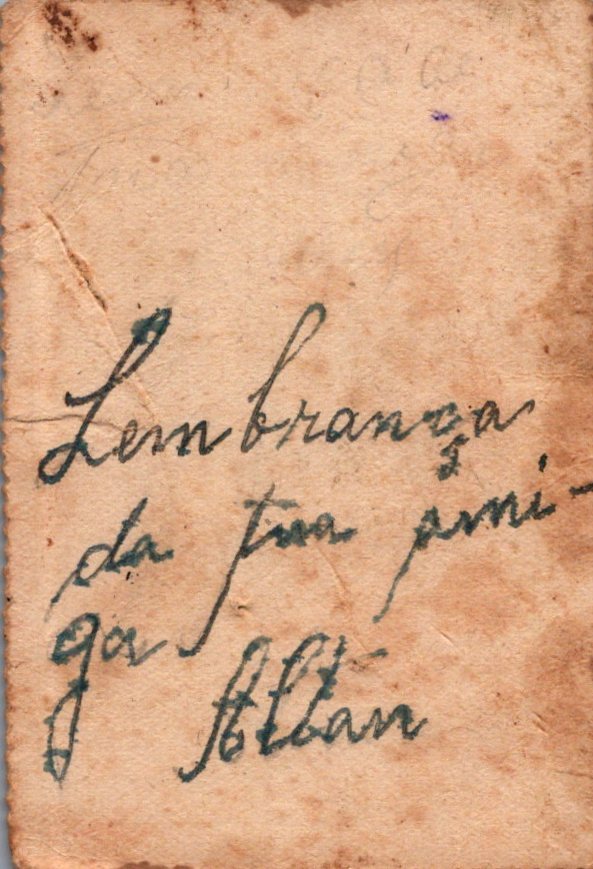 Lembrança
da tua ami-
ga
Altan